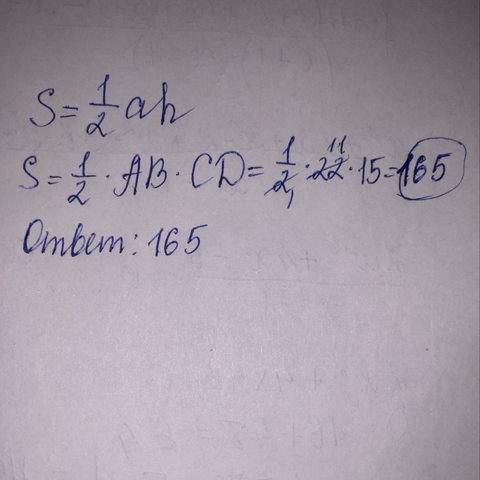 S = 1/2 ah
S = 1/2 · AB · CD = 1/2 · 22 · 15 = 165
11
1
Ответ: 165